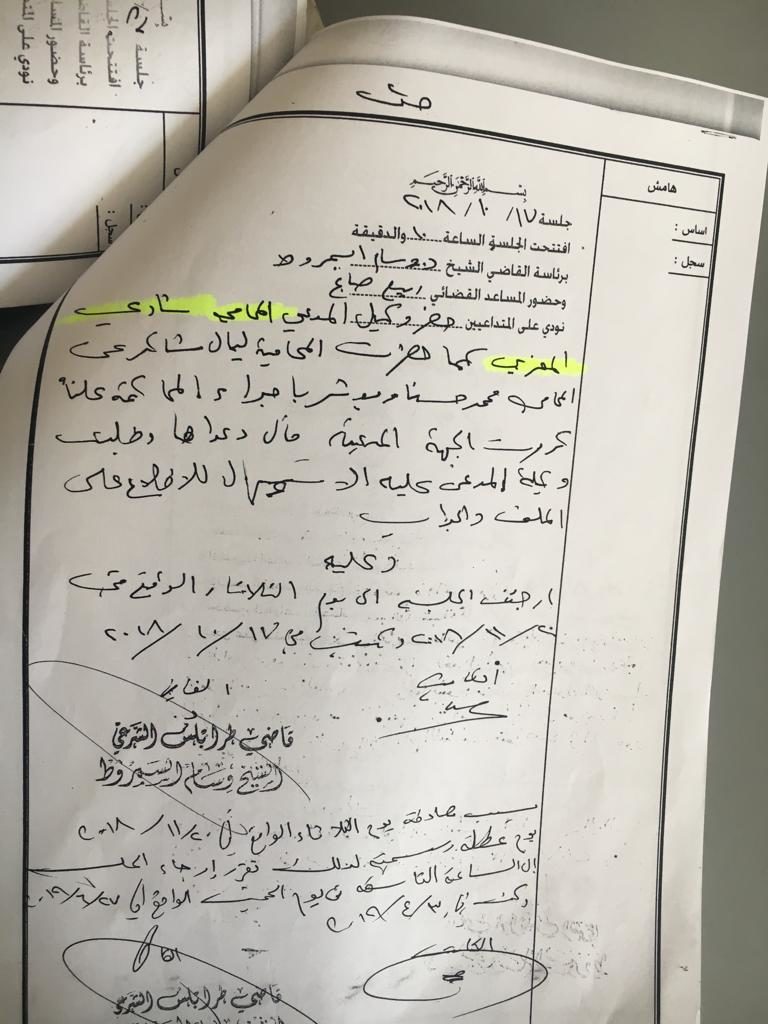 بسم الله الرحمن الرحيم
هامش
جلسة ١٧/ ١٠ /٢٠١٨
اساس :
افتتحت الجلسة الساعة ١٠ والدقيقة
سجل :
برئاسة القاضي الشيخ د. وسام السمروط
وحضور المساعد القضائي ربيع صاغ
نودي على المتداعيين حضر وكيل المدعي المحامي شادي
كما حضرت المحامية ليال شاكر عن
المحامي محمد حسنا وبوشر باجراء المحاكمة علناً
كررت الجهة المدعية مآل دعواها وطلبت
وكيلة المدعى عليه الاستمهال للاطلاع على
الملف والجواب
وعليه
ارجئت الجلسة الى يوم الثلاثاء الواقع في
٢٠/ ١١ /٢٠١٨ وكتبت في ١٧/ ١٠ /٢٠١٨
الكاتب
القاضي
قاضي طرابلس الشرعي
الشيخ وسام السمروط
بسبب مصادفة يوم الثلاثاء الواقع في ٢٠/ ١١ /٢٠١٨
يوم عطلة رسمية لذلك تقرر إرجاء الجلسة
الى الساعة التاسعة من يوم الواقع في
٣/ ٤ /٢٠١٩
الكاتب
قاضي طرابلس الشرعي
جلسة
افتتحت
برئاسة
وحضور
نودي على
سجل :